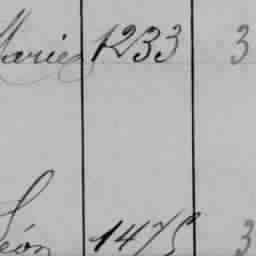 Marie 1233 3
Léon 1475 3